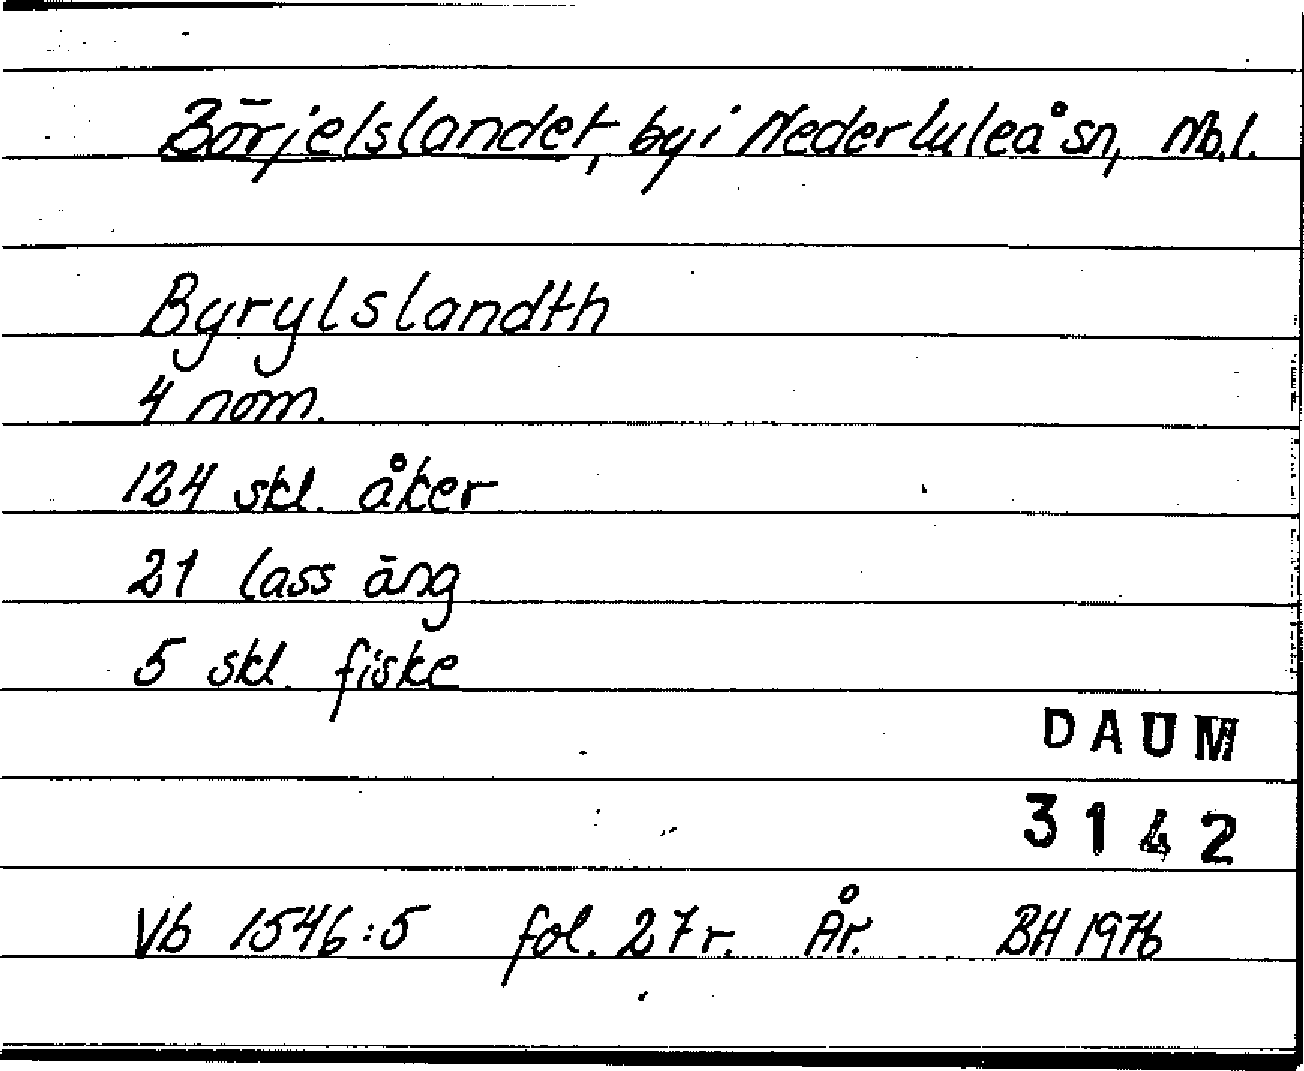 Börjelslandet, by i Nederluleå sn, Nb.l.
Byrylslandth
4 nom.
124 skl. åker
21 lass äng
5 skl. fiske
DAUM
3142
Vb 1546:5 fol. 27r. År. BH 1976